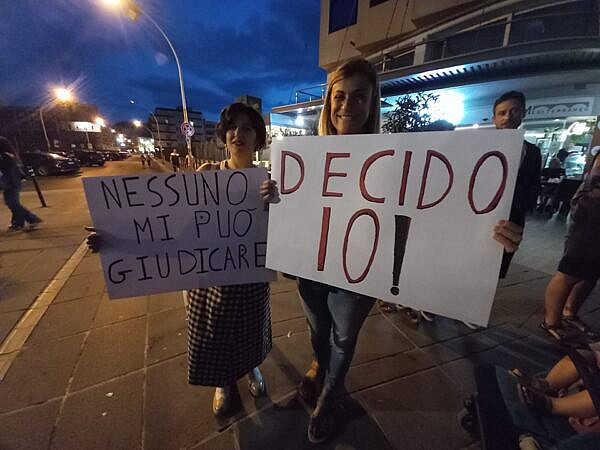 NESSUNO
MI PUÒ
GIUDICARE
DECIDO
IO!